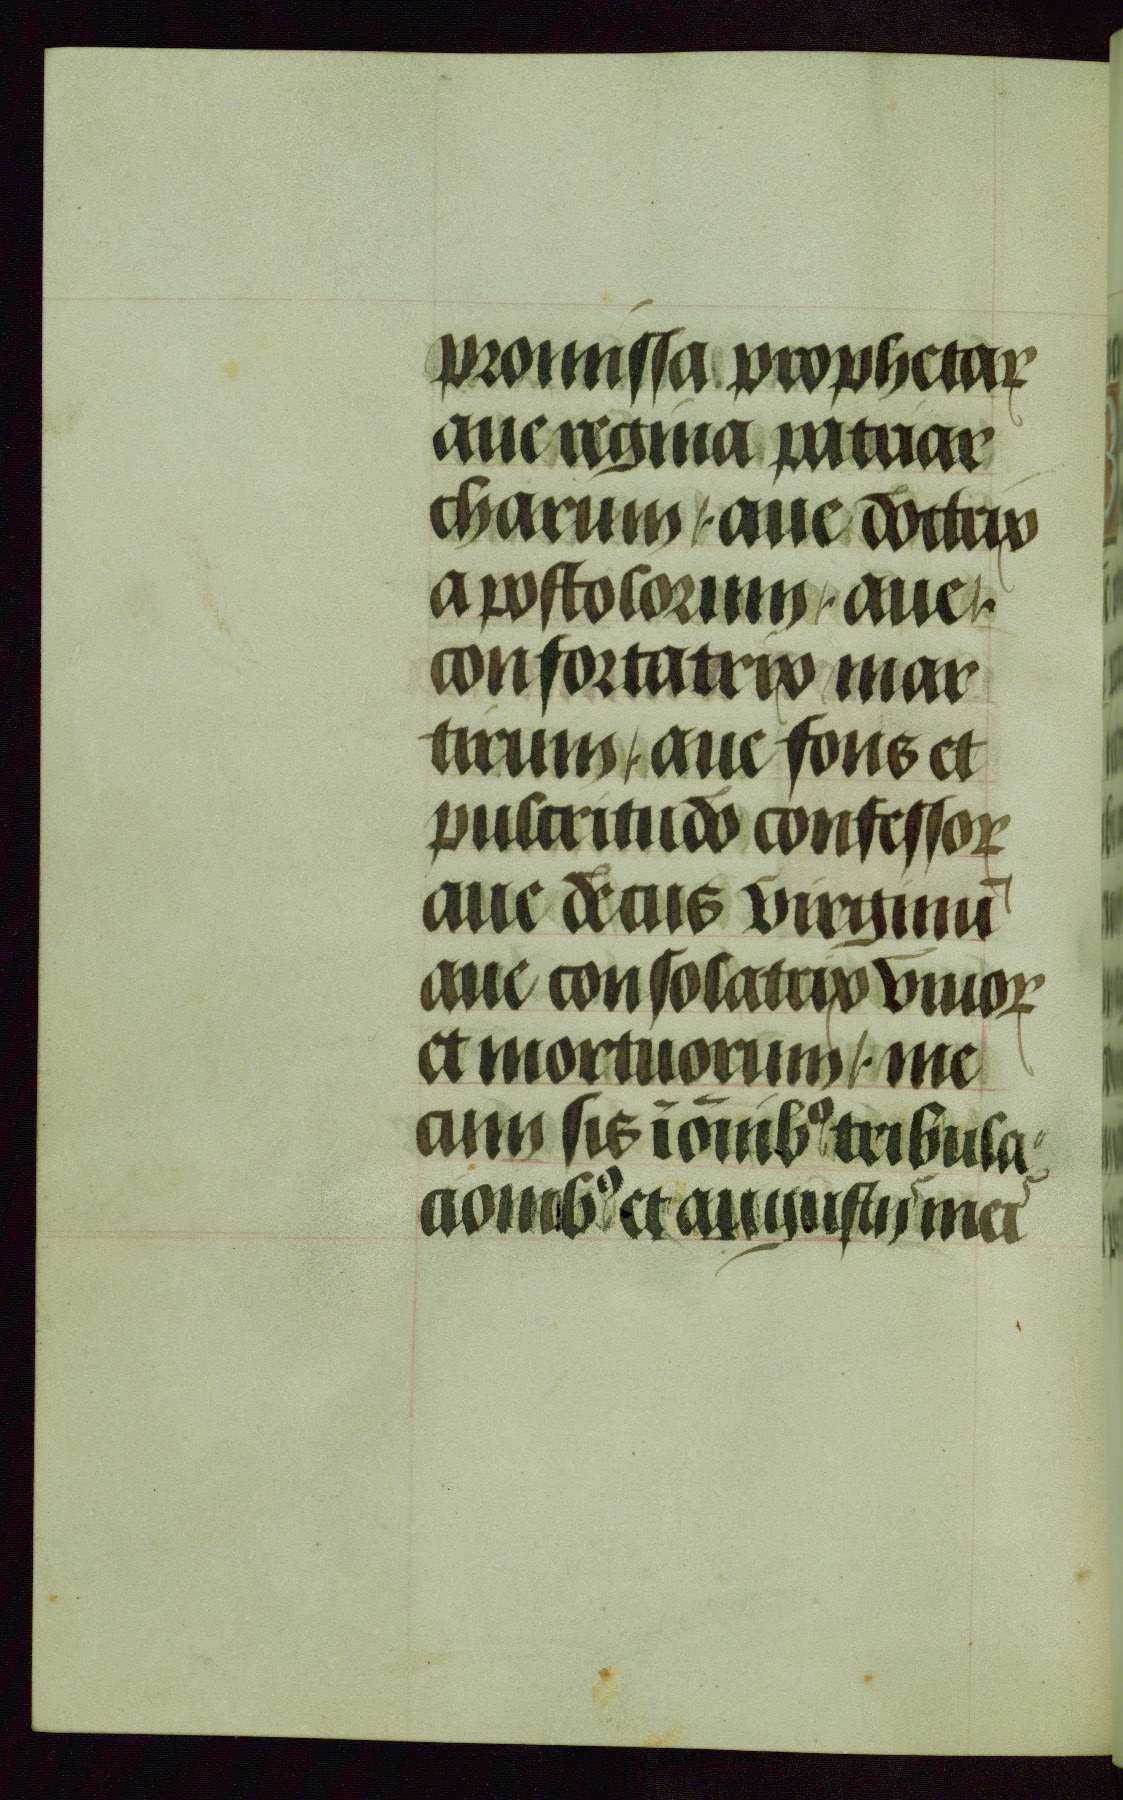 promissa prophetaꝝ
aue regina patriar
charum /· aue doctrix
apostolorum /· aue /·
confortatrix mar
tirum /· aue fons et
pulcritudo confessoꝝ
aue decus virginū
aue consolatrix viuoꝝ
et mortuorum /· me
cum sis ī om̄ib⁹ tribula
cionib⁹ et angustijs mei